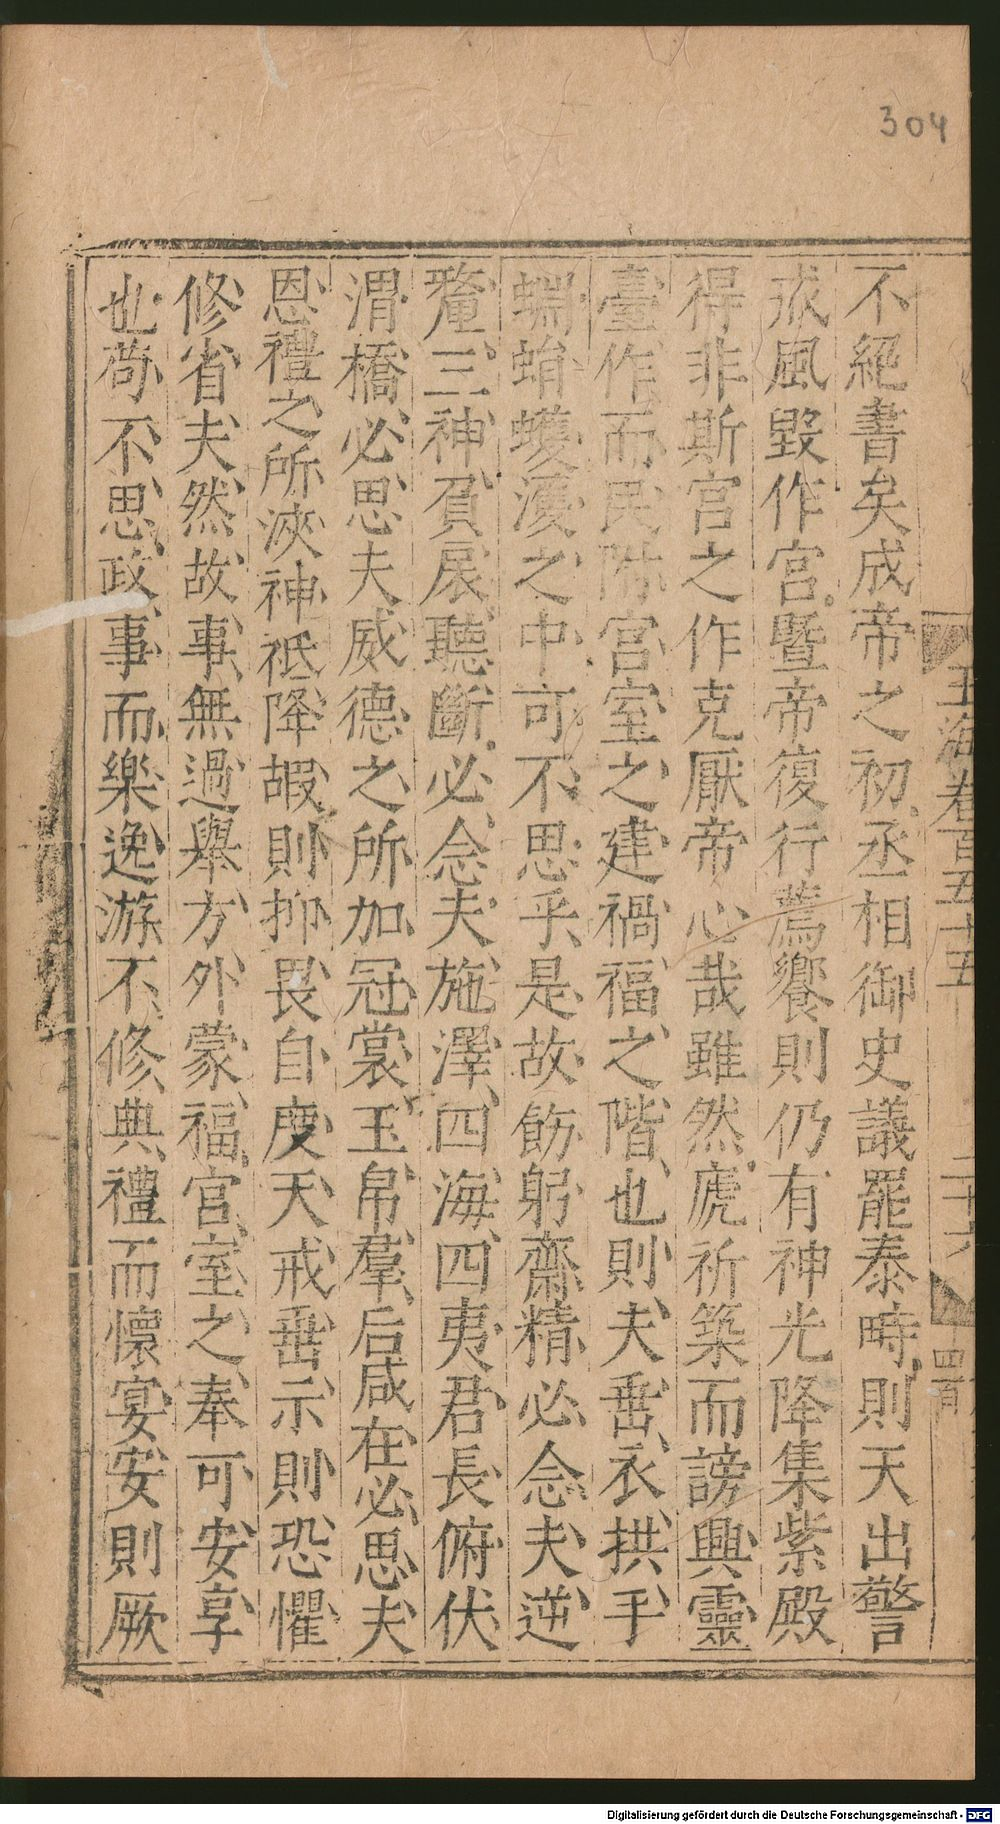 304
玉海卷百五十五
二十六
四百
不絕書矣成帝之初丞相御史議罷泰畤則天出警
烖風毀作宮暨帝復行薦饗則仍有神光降集紫殿
得非斯宮之作克厭帝心哉雖然虒祈築而謗興靈
臺作而民附宮室之建禍福之階也則夫垂衣拱手
蜵蜎蠖濩之中可不思乎是故飭躬齋精必念夫逆
釐三神負扆聽斷必念夫施澤四海四夷君長俯伏
渭橋必思夫威德之所加冠裳玉帛羣后咸在必思夫
恩禮之所浹神祇降嘏則抑畏自度天戒垂示則恐懼
修省夫然故事無過舉方外蒙福宮室之奉可安享
也苟不思政事而樂逸游不修典禮而懷宴安則厥
Digitalisierung gefördert durch die Deutsche Forschungsgemeinschaft - DFG